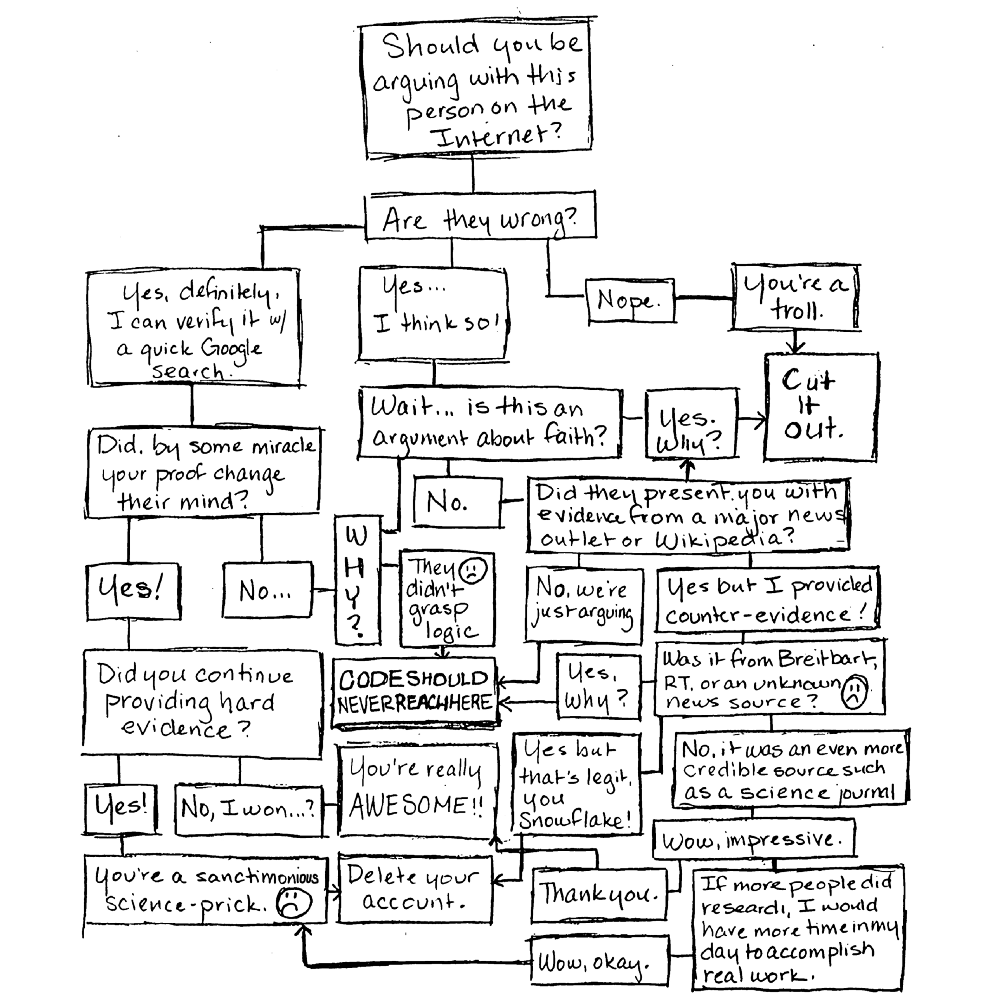 Should you be
arguing with this
person on the
Internet?
Are they wrong?
Yes, definitely,
I can verify it w/
a quick Google
search.
Yes...
I think so!
Nope.
You're a
troll.
Cut
it
out.
Wait... is this an
argument about faith?
Yes.
Why?
Did, by some miracle
your proof change
their mind?
No.
Did they present you with
evidence from a major news
outlet or Wikipedia?
Yes!
No...
W
H
Y
?
They
didn't
grasp
logic
No, we're
just arguing
Yes but I provided
counter-evidence!
Did you continue
providing hard
evidence?
CODE SHOULD
NEVER REACH HERE
Yes,
Why?
Was it from Breitbart,
RT, or an unknown
news source?
Yes!
No, I won...?
You're really
AWESOME!!
Yes but
that's legit,
you
Snowflake!
No, it was an even more
credible source such
as a science journal
Wow, impressive.
You're a sanctimonious
science-prick.
Delete your
account.
Thank you.
If more people did
research, I would
have more time in my
day to accomplish
real work.
Wow, okay.